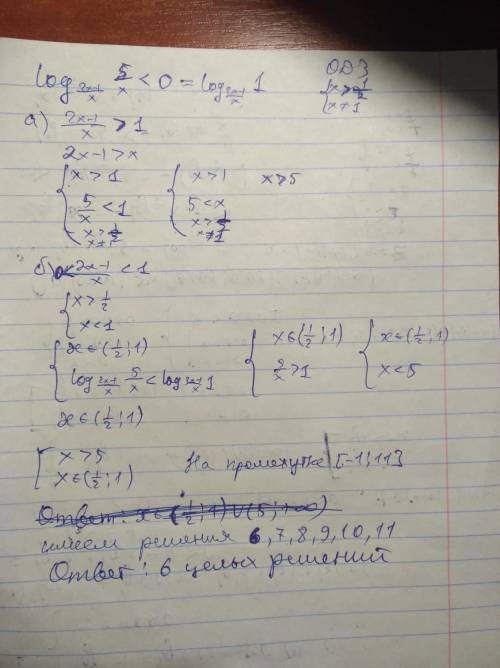 log_{\frac{2x-1}{x}} \frac{5}{x} < 0 = log_{\frac{2x-1}{x}} 1
ОДЗ
{ x > \frac{1}{2}
x ≠ 1
а) \frac{2x-1}{x} > 1
2x-1 > x
{ x > 1
\frac{5}{x} < 1
x > \frac{1}{2}
x ≠ 1
{ x > 1
5 < x
x > \frac{1}{2}
x ≠ 1
x > 5
б) 0 < \frac{2x-1}{x} < 1
{ x > \frac{1}{2}
x < 1
{ x ∈ (\frac{1}{2}; 1)
log_{\frac{2x-1}{x}} \frac{5}{x} < log_{\frac{2x-1}{x}} 1
{ x ∈ (\frac{1}{2}; 1)
\frac{5}{x} > 1
{ x ∈ (\frac{1}{2}; 1)
x < 5
x ∈ (\frac{1}{2}; 1)
[ x > 5
x ∈ (\frac{1}{2}; 1)
На промежутке [-1; 11]
Ответ: x ∈ (\frac{1}{2}; 1) ∪ (5; +∞)
имеем решения 6, 7, 8, 9, 10, 11
Ответ: 6 целых решений